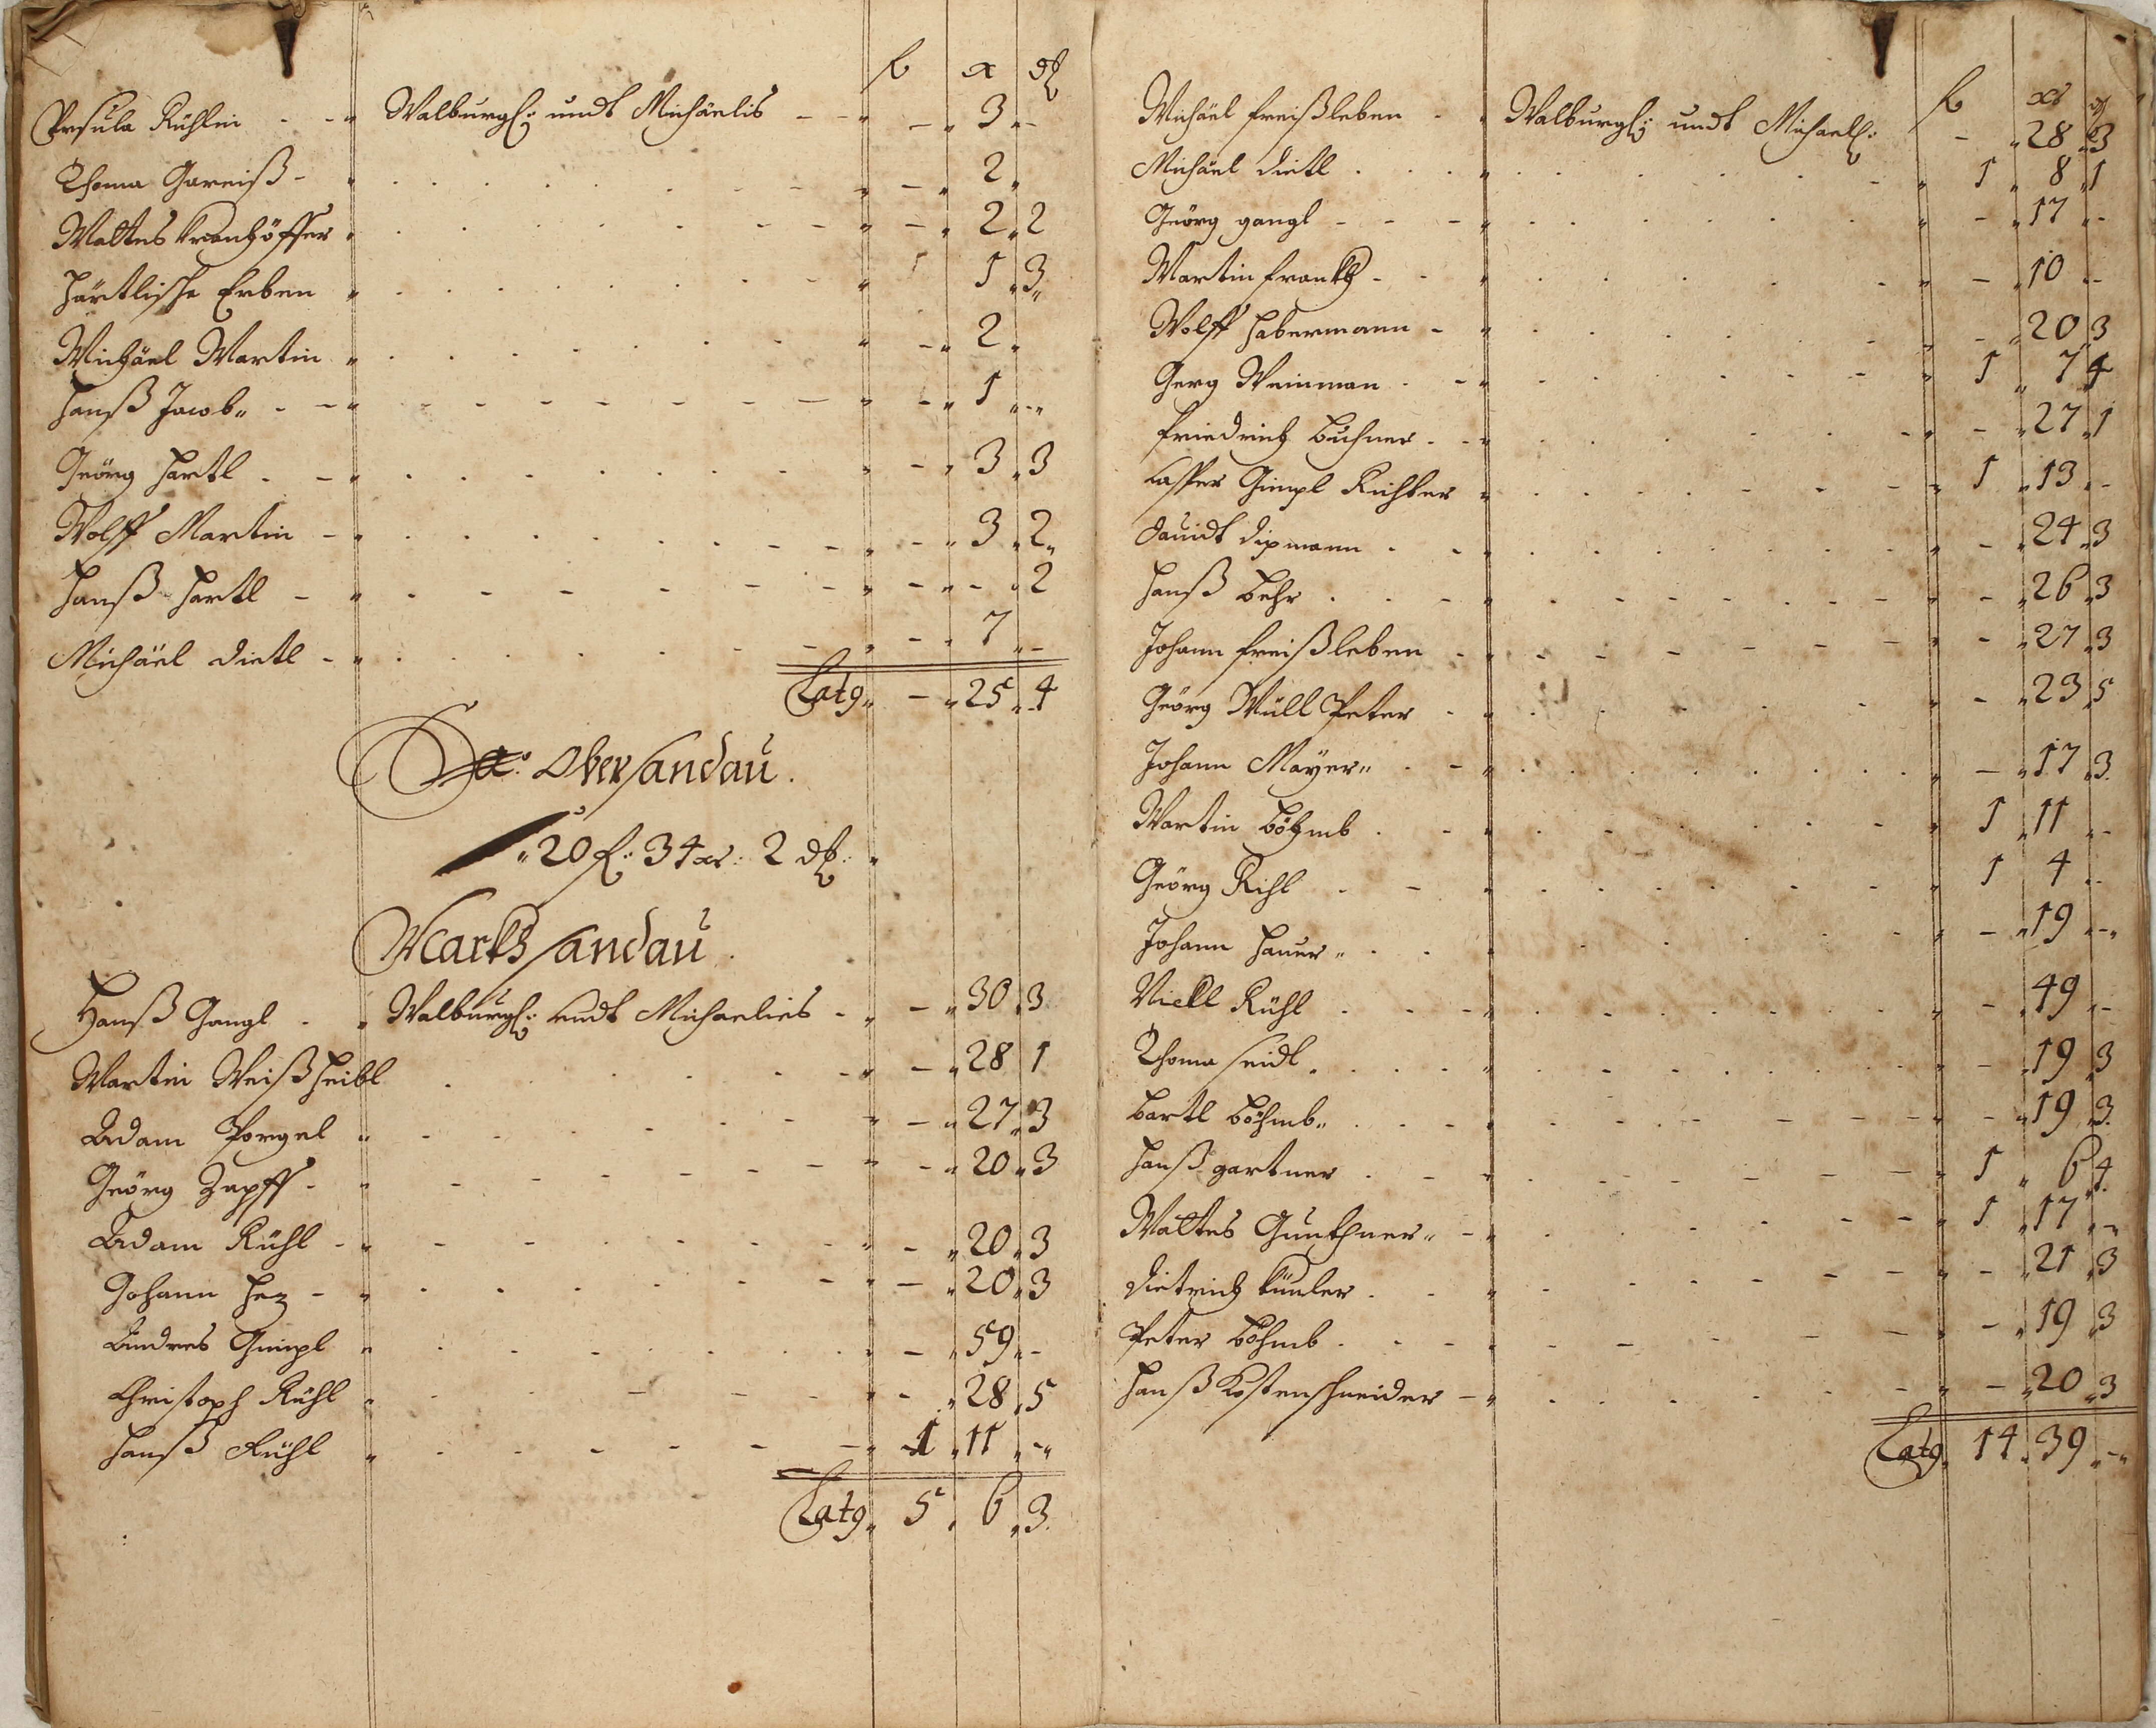 f x d
Vrsula Rühlin - - " Walburg: undt Michäelis - - " - " 3 " -
Thoma Gareiß - " - " 2 "
Mattes Kranhöffer " - " 2 " 2
Härtlische Erben " 1 " 3 "
Michäel Martin " - " 2 "
Hanß Jacob " - - " - " 1 " - "
Geörg Hartl - - " - " 3 " 3
Wolff Martin - " - " 3 " 2 "
Hanß Hartl - " - " - " 2
Michäel Dietl - " - " 7 " -
Lat9 " - " 25 " 4
Sa: Obersandau.
" 20 f: 34 xr: 2 d: "
Markt Sandau.
Hanß Gangl - " Walburg: undt Michaelies - " - " 30 " 3
Martin Weißheibl - " 28 1
Adam Porgel " - " 27 " 3
Geörg Zapff - " - " 20 " 3
Adam Rühl - " - " 20 " 3
Johann Hez - " - " 20 " 3
Andres Gimpl " - " 59 " -
Christoph Rühl " - " 28 " 5
Hanß Rühl " 1 " 11 " - "
Lat9 " 5 " 6 " 3
f xr d
Michäel Freißleben - " Walburg: undt Michael: - " 28 " 3
Michäel Dietl " 1 " 8 " 1
Geörg Gangl - - - " - " 17 " -
Martin Frankh - - " - " 10 " -
Wolff Habermann - " - " 20 3
Gerg Weinman - - " 1 " 7 4
Friedrich Buhner - - " - " 27 " 1
Casper Gimpl Richter " 1 " 13 " -
Dauidt Dixmann - - " - " 24 " 3
Hanß Behr - - " - " 26 " 3
Johann Freißleben - " - " 27 " 3
Geörg Müll Peter - " - " 23 5
Johann Mayer " - - " - " 17 " 3
Martin Böhmb - - " 1 " 11 " -
Geörg Rihl - - " 1 4 " -
Johann Hauer " - " 19 " - "
Nickl Rühl - - " - " 49 " -
Thoma Seidl - " - " 19 " 3
Bartl Böhmb " - " - " 19 " 3
Hanß Gartner - - " 1 " 6 4
Mattes Gunthner " - " 1 " 17 " -
Dietrich - - " - " 21 " 3
Peter Böhmb - - " - " 19 " 3
Hanß Kostenschneider - " - " 20 " 3
Lat9 " 14 " 39 " - "